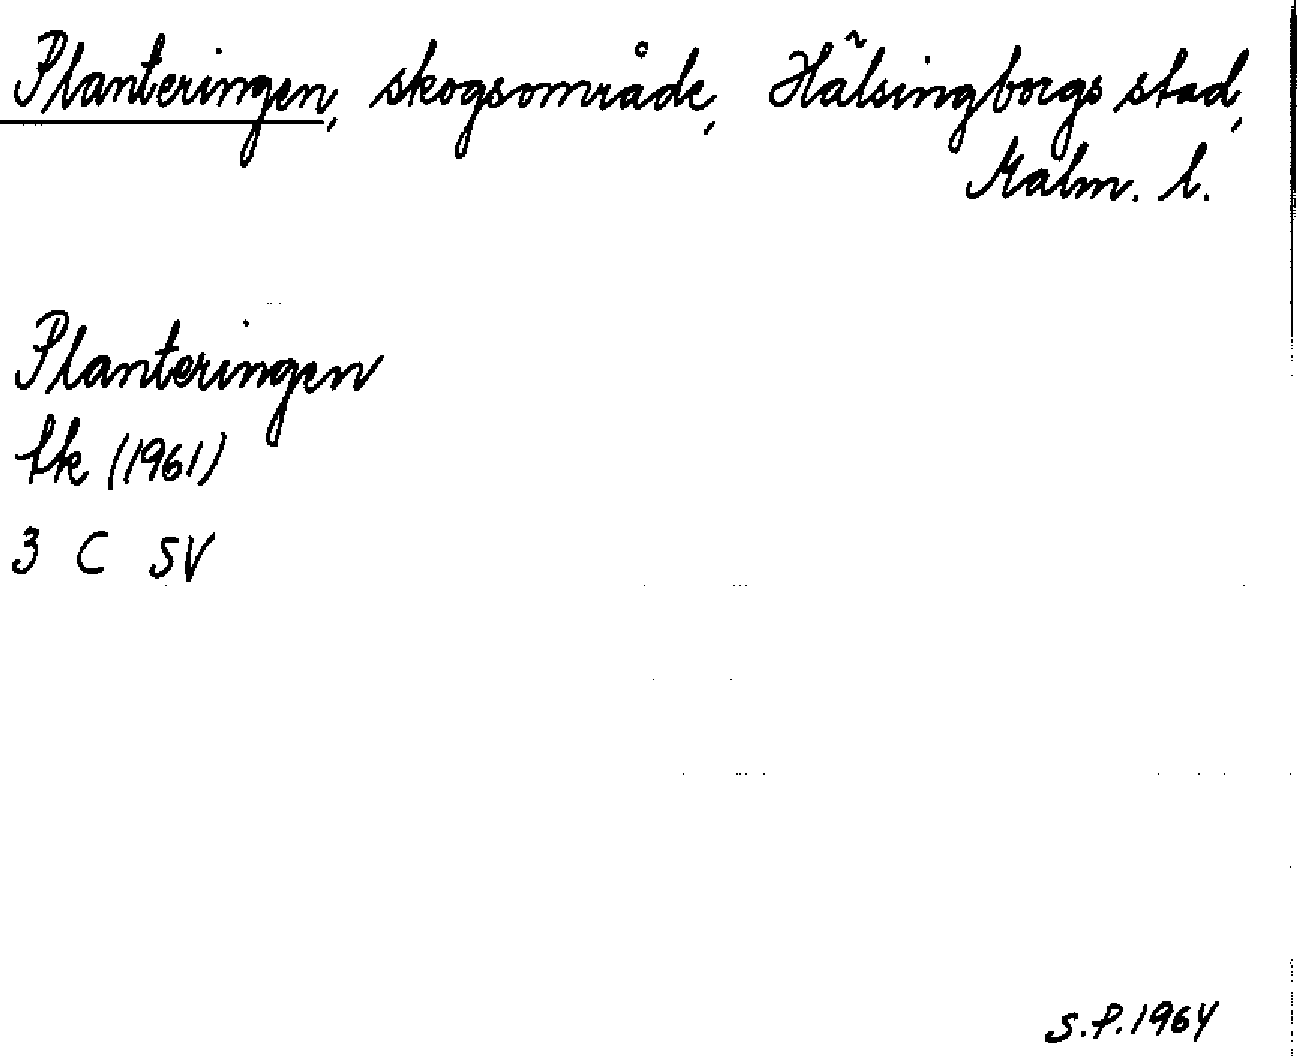 Planteringen, skogsområde, Hälsingborgs stad,
Malm. l.
Planteringen
tk (1961)
3 C SV
S.P. 1964